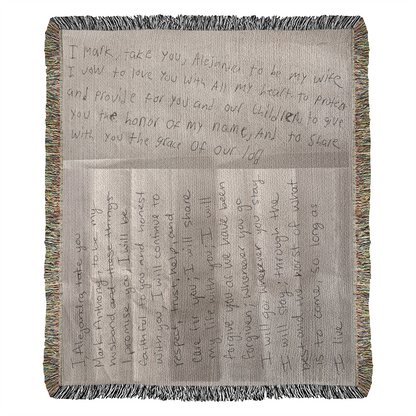 I mark, take you, Alejandra to be my wife
I vow to love you with all my heart to protect
and provide for you and our children, to give
you the honor of my name, And to share
with you the grace of our
I Alejandra take you
Mark Anthony to be my
husband and these things
I promise you I will be
faithful to you and honest
with you I will continue to
respect, trust, help, and
care for you I will share
my life with you I will
forgive you as we have been
forgiven wherever you go
I will go, wherever you stay
I will stay, through the
best and the worst of what
is to come, so long as
I live